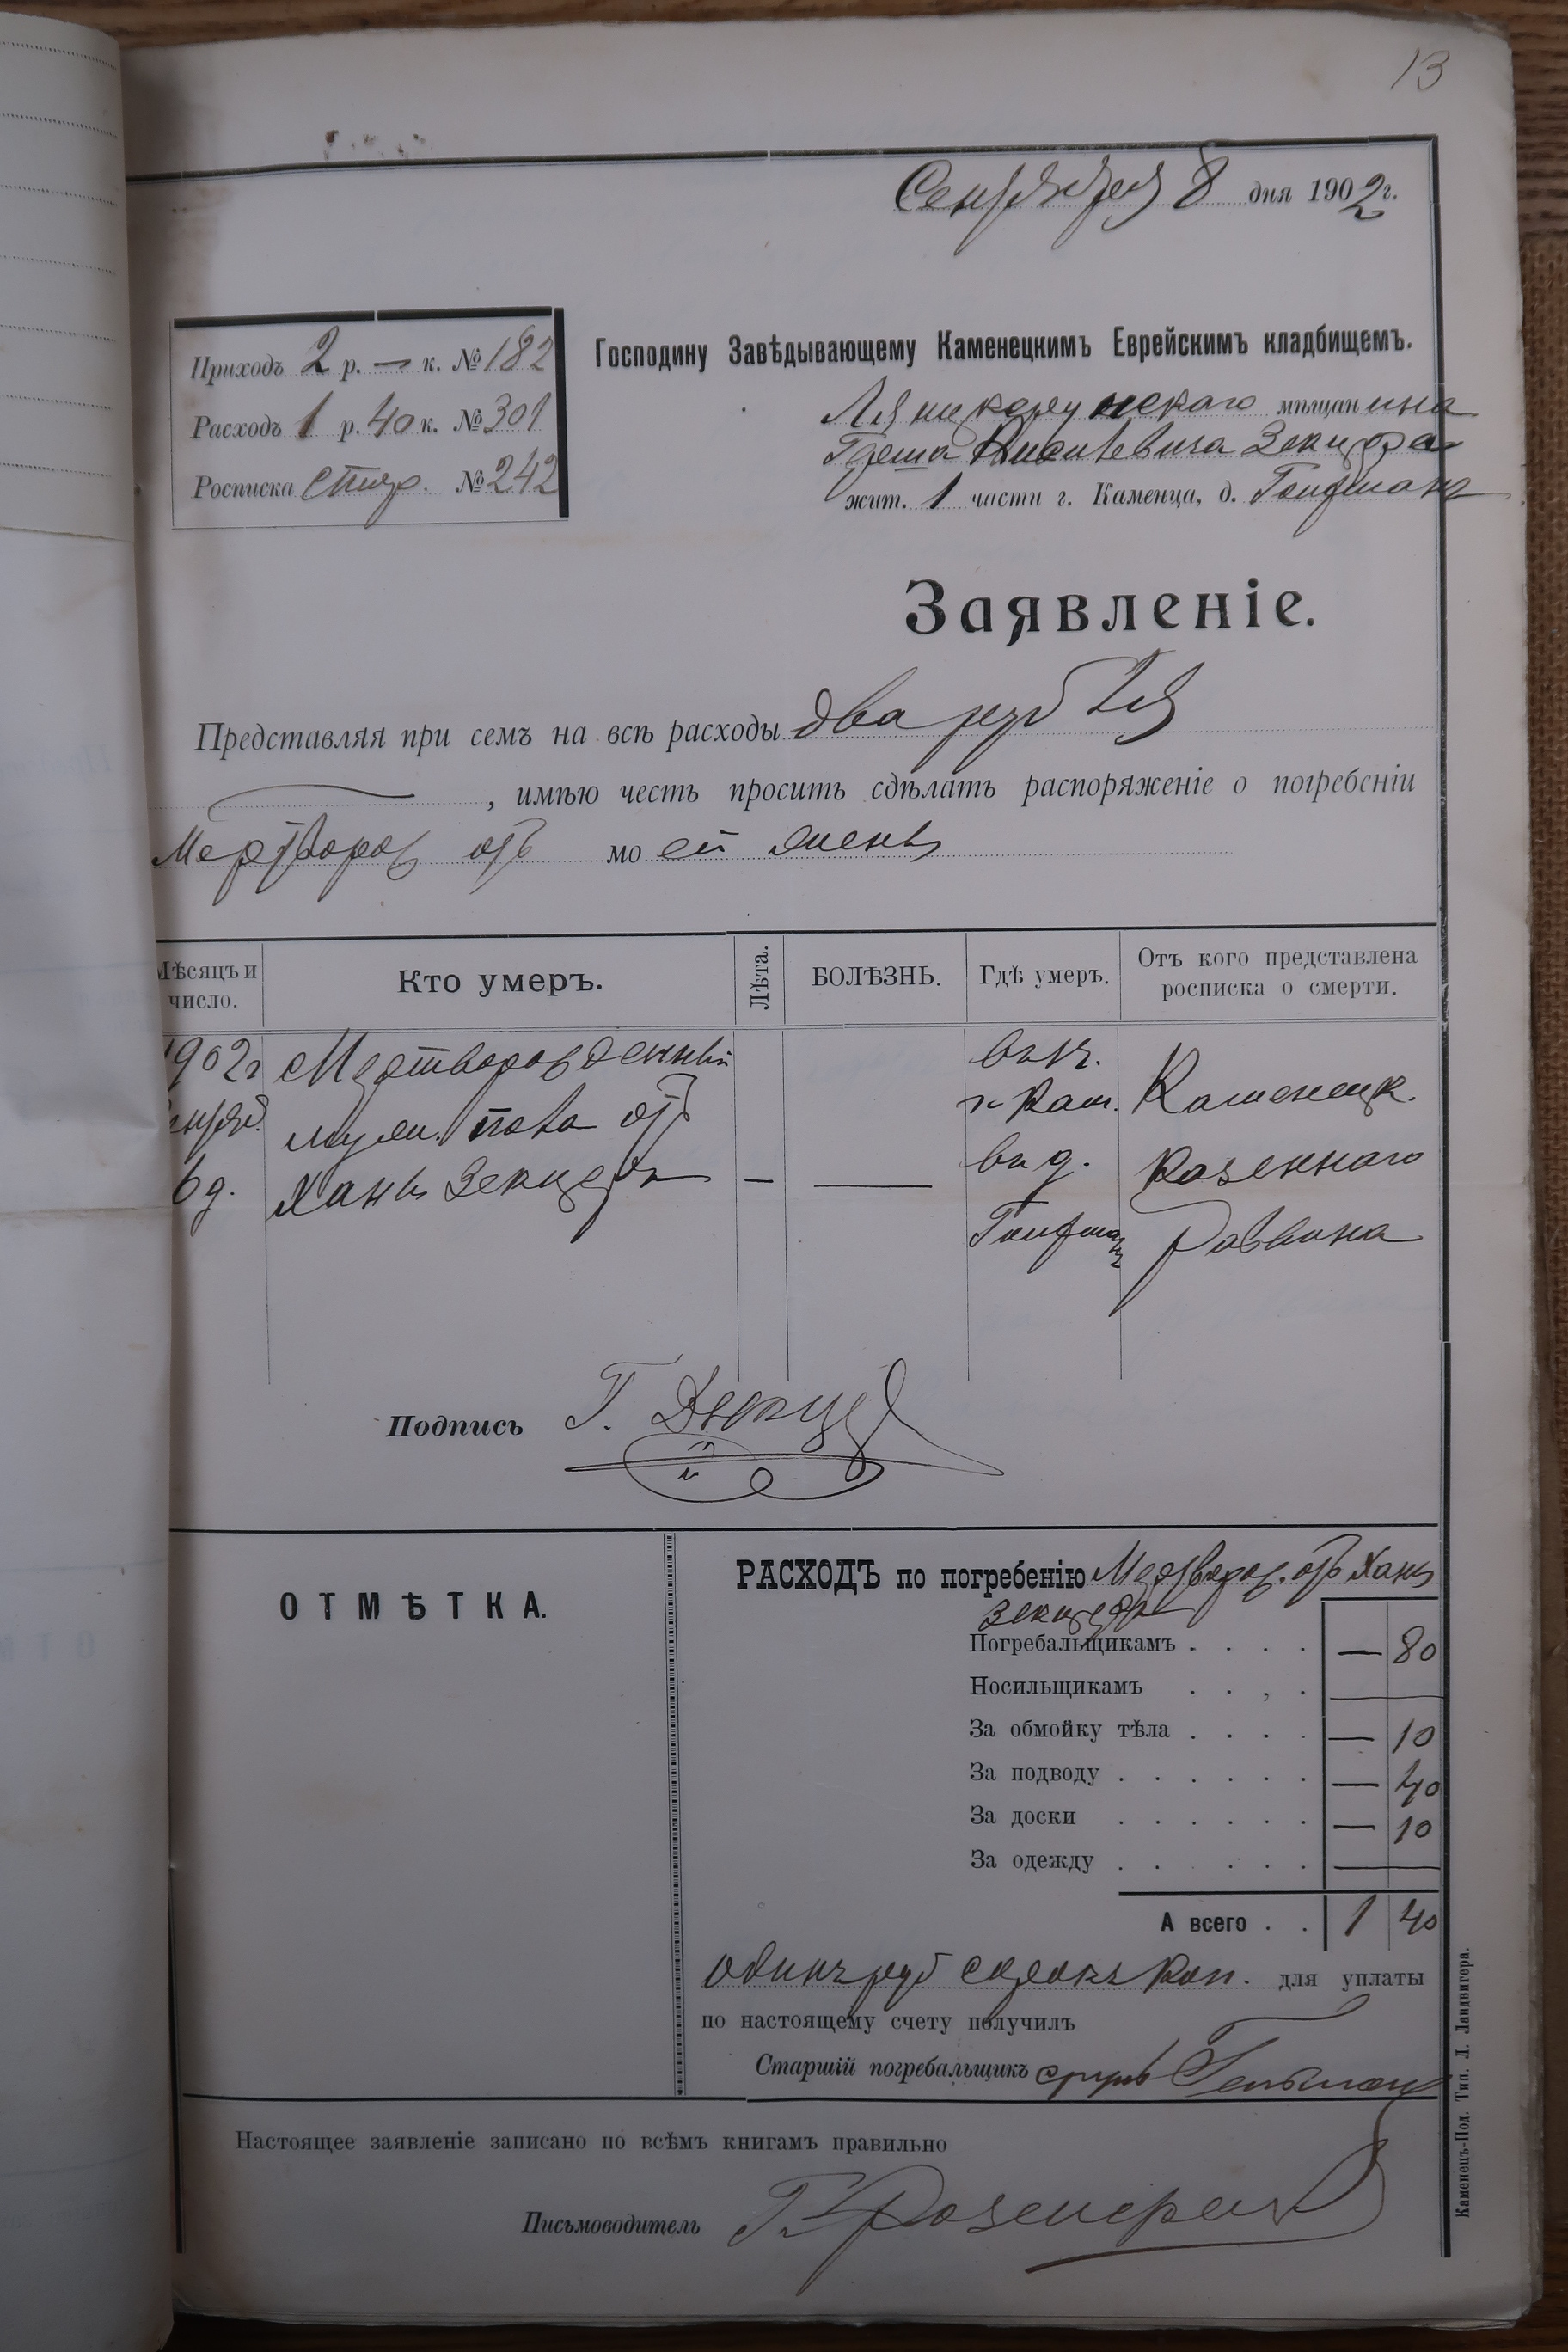 13
Сентября 8 дня 1902 г.
Приходъ 2 р. — к. № 182
Расходъ 1 р. 40 к. № 301
Росписка № 242
Господину Завѣдывающему Каменецкимъ Еврейскимъ кладбищемъ.
мѣщанина
Зекцера
жит. 1 части г. Каменца, д. Гойфмана
Заявленіе.
Представляя при семъ на всѣ расходы два рубля
—, имѣю честь просить сдѣлать распоряженіе о погребеніи
Мертворож отъ моей жены
Мѣсяцъ и число.
Кто умеръ.
Лѣта.
БОЛѢЗНЬ.
Гдѣ умеръ.
Отъ кого представлена росписка о смерти.
1902 г Мертворожденный въ
г. Кам. Каменецк.
муж. пола отъ
въ д. Казеннаго
6 д. Ханы Зекцеръ — —
Гойфман Раввина
Подпись Г. Зекцер
ОТМѢТКА.
РАСХОДЪ по погребенію Мертворож. отъ Ханы
Зекцеръ
Погребальщикамъ . . . . — 80
Носильщикамъ . . , . —
За обмойку тѣла . . . . — 10
За подводу . . . . . . — 40
За доски . . . . . . — 10
За одежду . . . . . . —
А всего . . 1 40
Одинъ руб сорокъ коп. для уплаты
по настоящему счету получилъ
Старшій погребальщикъ
Настоящее заявленіе записано по всѣмъ книгамъ правильно
Письмоводитель
Каменецъ-Под. Тип. Л. Ландвигера.